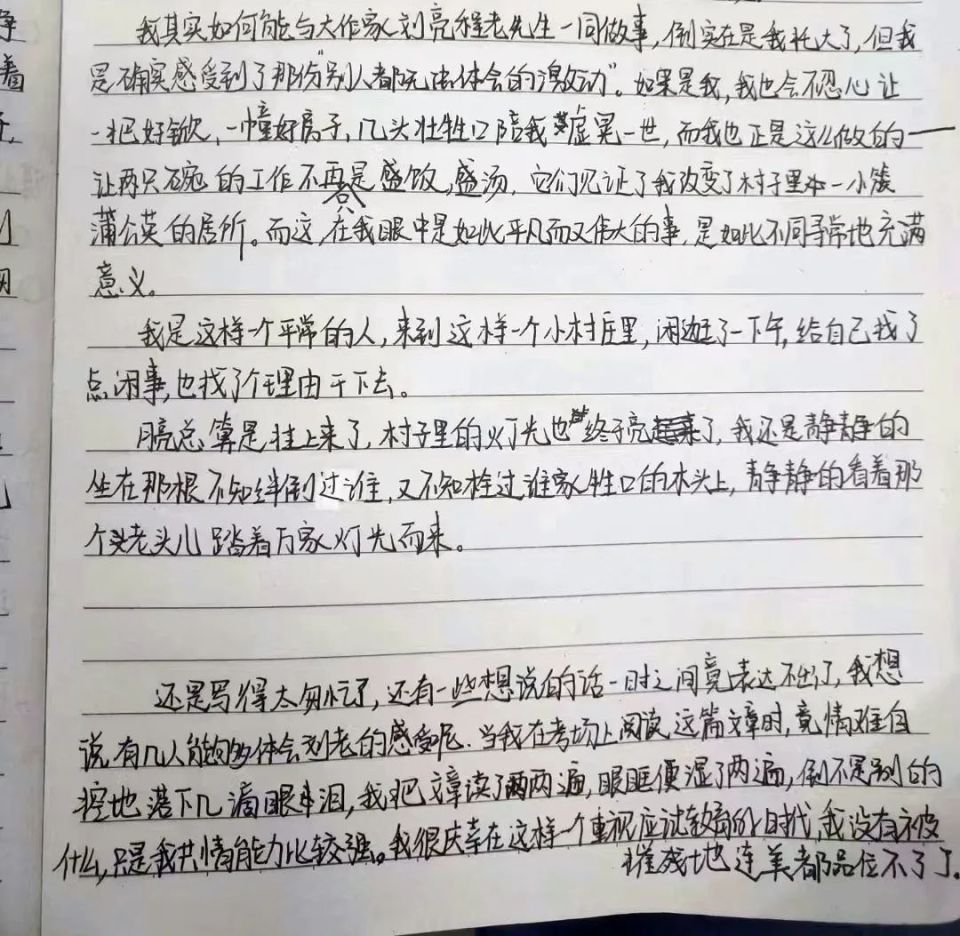 我其实如何能与大作家刘亮程老先生一同做事,倒实在是我托大了,但我
是确实感受到了那份"别人都无法体会的激动"。如果是我,我也会不忍心让
一把好锨,一幢好房子,几头壮牲口陪我虚晃一世,而我也正是这么做的——
让两只碗的工作不再是盛饭,盛汤,它们见证了我改变了村子里本一小簇
蒲公英的居所。而这,在我眼中是如此平凡而又伟大的事,是如此不同寻常地充满
意义。
我是这样一个平常的人,来到这样一个小村庄里,闲逛了一下午,给自己找了
点闲事,也找了个理由干下去。
月亮总算是挂上来了,村子里的灯光也终于亮了,我还是静静的
坐在那根不知绊倒过谁,又不知栓过谁家牲口的木头上,静静的看着那
个老头儿踏着万家灯光而来。
还是写得太匆忙了,还有一些想说的话一时之间竟表达不出了,我想
说,有几人能够体会刘老的感受呢.当我在考场上阅读这篇文章时,竟情难自
控地落下几滴眼泪,我把文章读了两遍,眼眶便湿了两遍,倒不是别的
什么,只是我共情能力比较强。我很庆幸在这样一个重视应试教育的时代,我没有被
摧残地连美都品位不了了。
争
着
子,